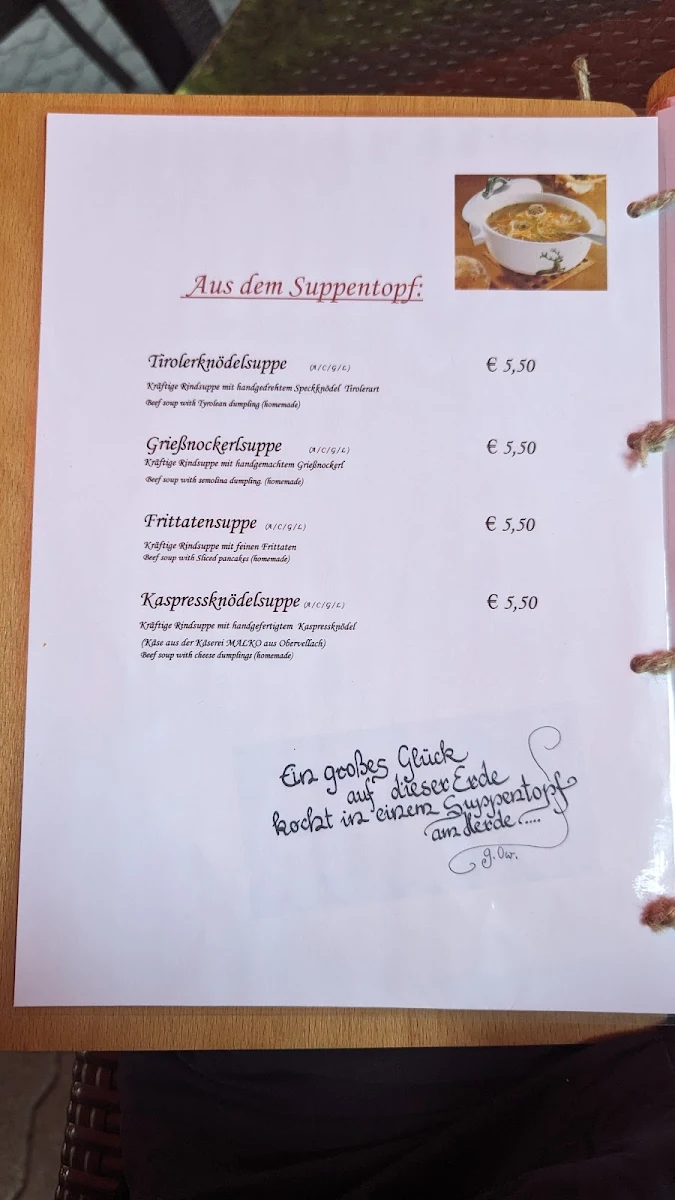 Aus dem Suppentopf:
Tirolerknödelsuppe (A/C/G/L) € 5,50
Kräftige Rindsuppe mit handgedrehtem Speckknödel Tirolerart
Beef soup with Tyrolean dumpling (homemade)
Grießnockerlsuppe (A/C/G/L) € 5,50
Kräftige Rindsuppe mit handgemachtem Grießnockerl
Beef soup with semolina dumpling. (homemade)
Frittatensuppe (A/C/G/L) € 5,50
Kräftige Rindsuppe mit feinen Frittaten
Beef soup with Sliced pancakes (homemade)
Kaspressknödelsuppe (A/C/G/L) € 5,50
Kräftige Rindsuppe mit handgefertigtem Kaspressknödel
(Käse aus der Käserei MALKO aus Obervellach)
Beef soup with cheese dumplings (homemade)
Ein großes Glück
auf dieser Erde
kocht in einem Suppentopf
am Herde ....
g.Ow.